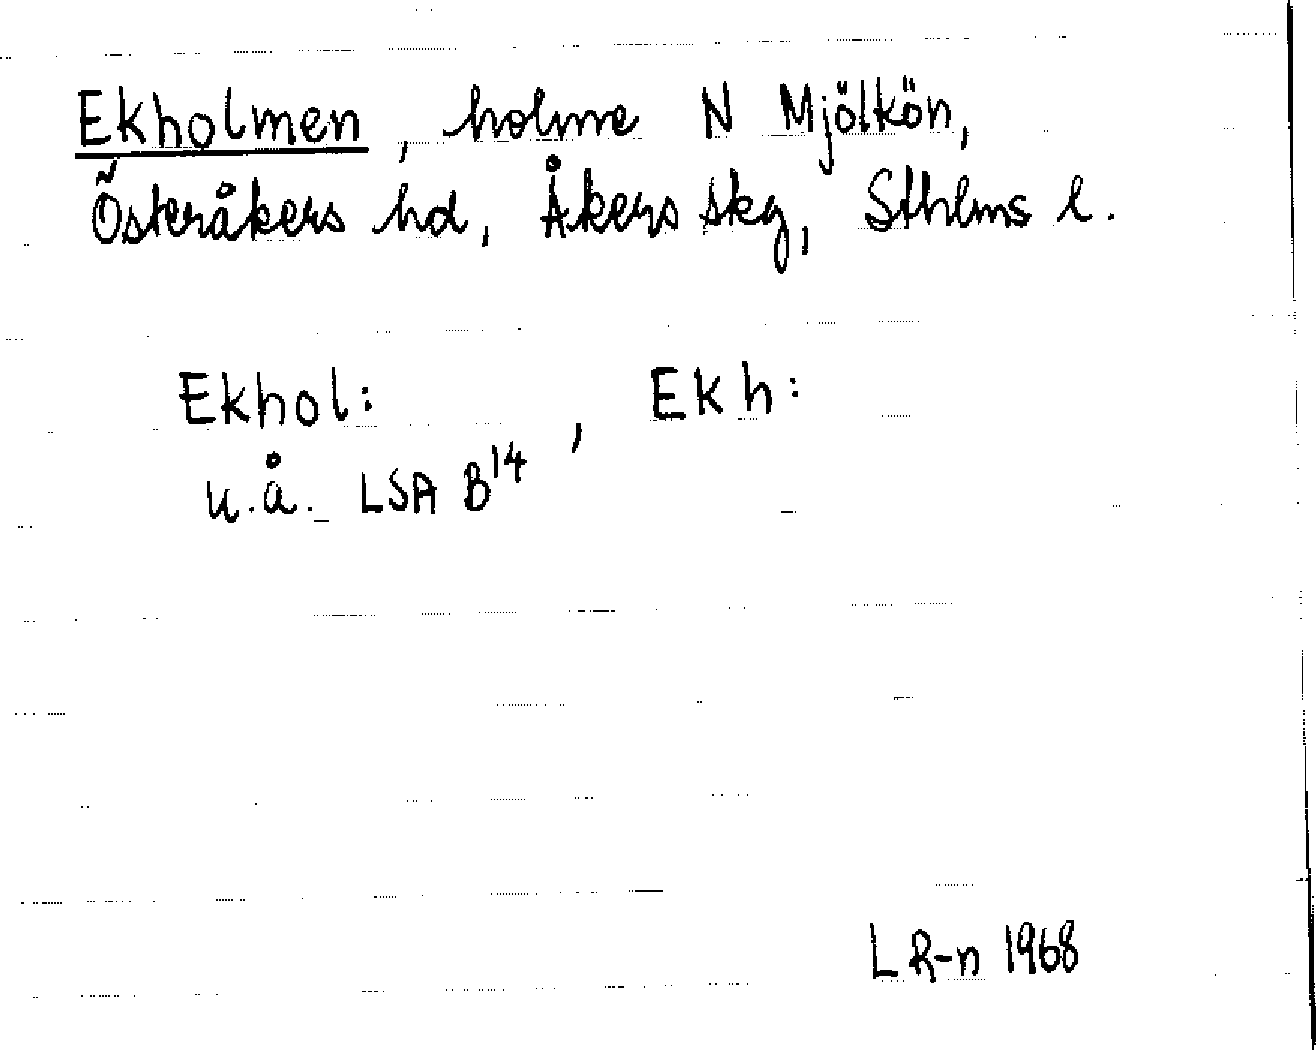 Ekholmen, holme N Mjölkön,
Österåkers hd, Åkers skg, Sthlms l.
Ekhol: , Ekh:
u.å. LSA B14
L R-n 1968